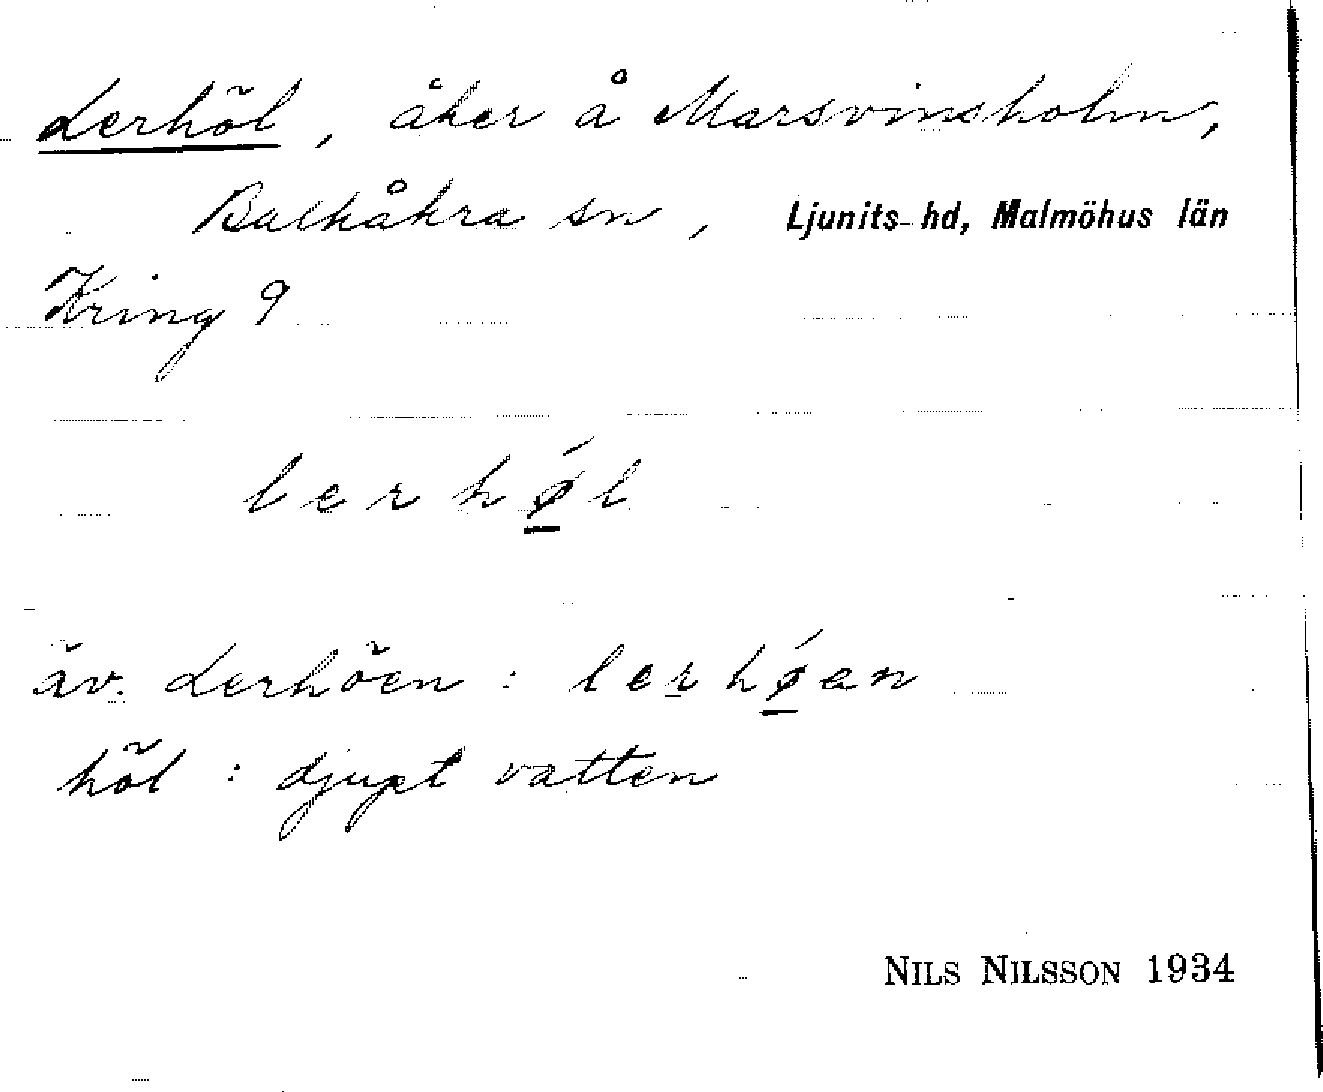 Lerhöl, åker å Marsvinsholm,
Balkåkra sn, Ljunits hd, Malmöhus län
Kring 9
lerhǿl
äv. Lerhöen : lerhǿen
höl : djupt vatten
NILS NILSSON 1934